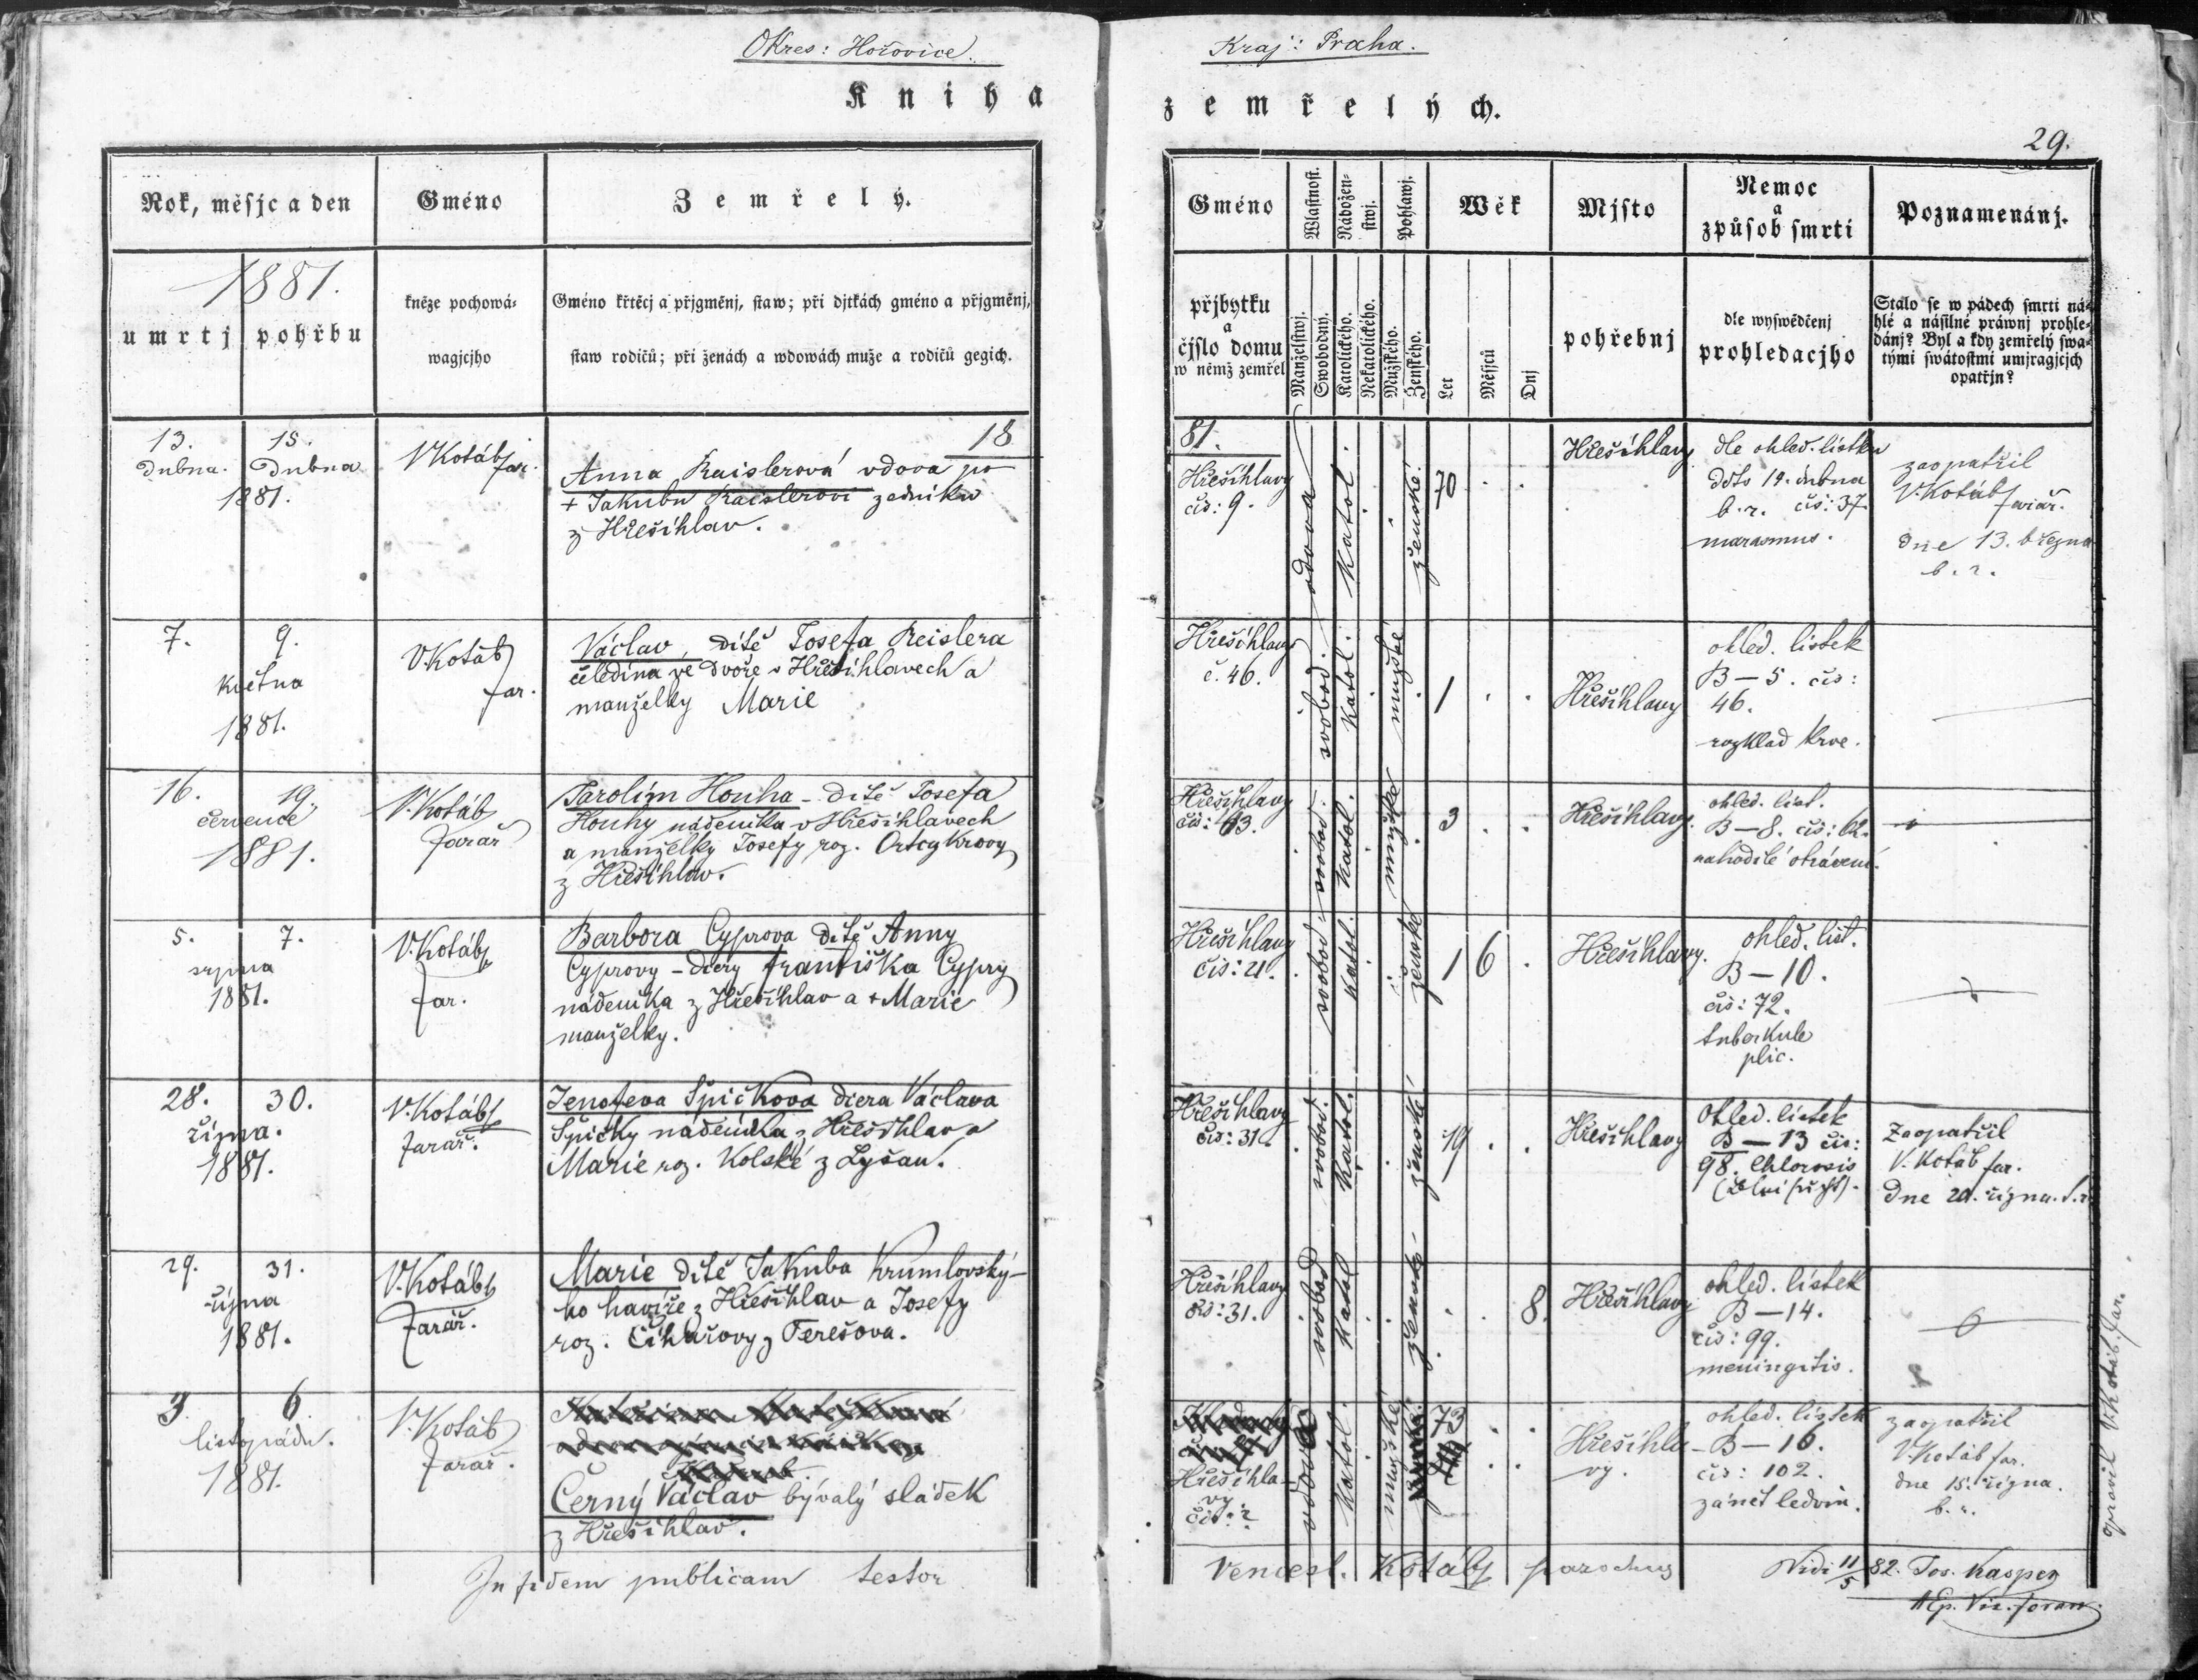 Okres: Hořovice.
Kniha
Rok, měsjc a den
Gméno
Zemřelý.
1881.
umrtj
pohřbu
kněze pochowá-
wagjcjho
Gméno křtěcj a přjgměnj, staw; při djtkách gméno a přjgměnj,
staw rodičů; při ženách a wdowách muže a rodičů gegich.
13.
15.
Dubna.
Dubna
1881.
V Kotáb
far.
18
Anna Raislerová vdova po
+ Jakubu Raislerovi zedníku
z Hřešihlav.
7.
9.
Května
1881.
V. Kotáb
far.
Václav, dítě Josefa Reislera
čeledína ve Dvoře v Hřešihlavech a
manželky Marie
16.
19.
července
1881.
V. Kotáb
farář
Jarolím Houha - dítě Josefa
Houhy nádeníka v Hřešihlavech
a manželky Josefy roz.
z Hřešihlav.
5.
7.
srpna
1881.
V. Kotáb
far.
Barbora Cyprova dítě Anny
Cyprovy - dcery Františka Cypry
nádeníka z Hřešihlav a + Marie
manželky.
28.
30.
října.
1881.
V. Kotáb
farář.
Jenofeva Špičkova dcera Václava
Špičky nádeníka z Hřešihlav a
Marie roz. Kolské z Lyšan.
29.
31.
října
1881.
V. Kotáb
farář.
Marie dítě Jakuba Krumlovský-
ho havíře z Hřešihlav a Josefy
roz. Čihařovy z Terešova.
3.
6
listopadu.
1881.
V. Kotáb
farář.
Černý Václav bývalý sládek
z Hřešihlav.
In fidem publicam testor
Kraj: Praha.
zemřelých.
29.
Gméno
Wlastnost.
Nábožen-
stwj.
Pohlawj.
Wěk
Mjsto
Nemoc
a
způsob smrti
Poznamenánj.
přjbytku
a
čjslo domu
w němž zemřel
Manželstwj.
Swobodný.
Katolického.
Nekatolického.
Mužského.
Ženského.
Let
Měsjců
Dnj
pohřebnj
dle wyswědčenj
prohledacjho
Stalo se w pádech smrti ná-
hlé a násilné práwnj prohle-
dánj? Byl a kdy zemřelý swa-
tými swátostmi umjragjcjch
opatřjn?
81.
Hřešihlavy
čís: 9.
vdova
katol.
ženské
70
Hřešihlavy
dle ohled. lístku
ddto 19. dubna
b. r. čís: 37
marasmus.
zaopatřil
V. Kotáb
farář.
dne 13. března
b. r.
Hřešihlavy
č. 46.
svobod.
katol.
mužské
1
Hřešihlavy
ohled. lístek
B - 5. čís:
46.
rozklad krve.
Hřešihlavy
čís: 63.
svobod.
katol.
mužské
3
Hřešihlavy.
ohled. líst.
B - 8. čís: 62.
nahodilé otrávení.
Hřešihlavy
čís: 21.
svobod.
katol.
ženské
1 6
Hřešihlavy.
ohled. líst.
B - 10.
čís: 72.
tuberkule
plic.
Hřešihlavy
čís: 31.
svobod.
katol.
ženské
19
Hřešihlavy
Ohled. lístek
B - 13 čís:
98. Chlorosis
Zaopatřil
V. Kotáb far.
dne 20. října
Hřešihlavy
čís: 31.
svobod
katol
ženské
8.
Hřešihlavy
ohled. lístek
B - 14.
čís: 99.
meningitis.
Hřešihla-
vy
čís: 2
vdovec
katol.
mužské
73
Hřešihla-
vy.
ohled. lístek
B - 16.
čís: 102.
zánět ledvin.
zaopatřil
V. Kotáb far.
dne 15. října.
b. r.
opravil V. Kotáb. far.
Vencesl. Kotáb parochus
Vidi 11/5 82. Jos. Kasper